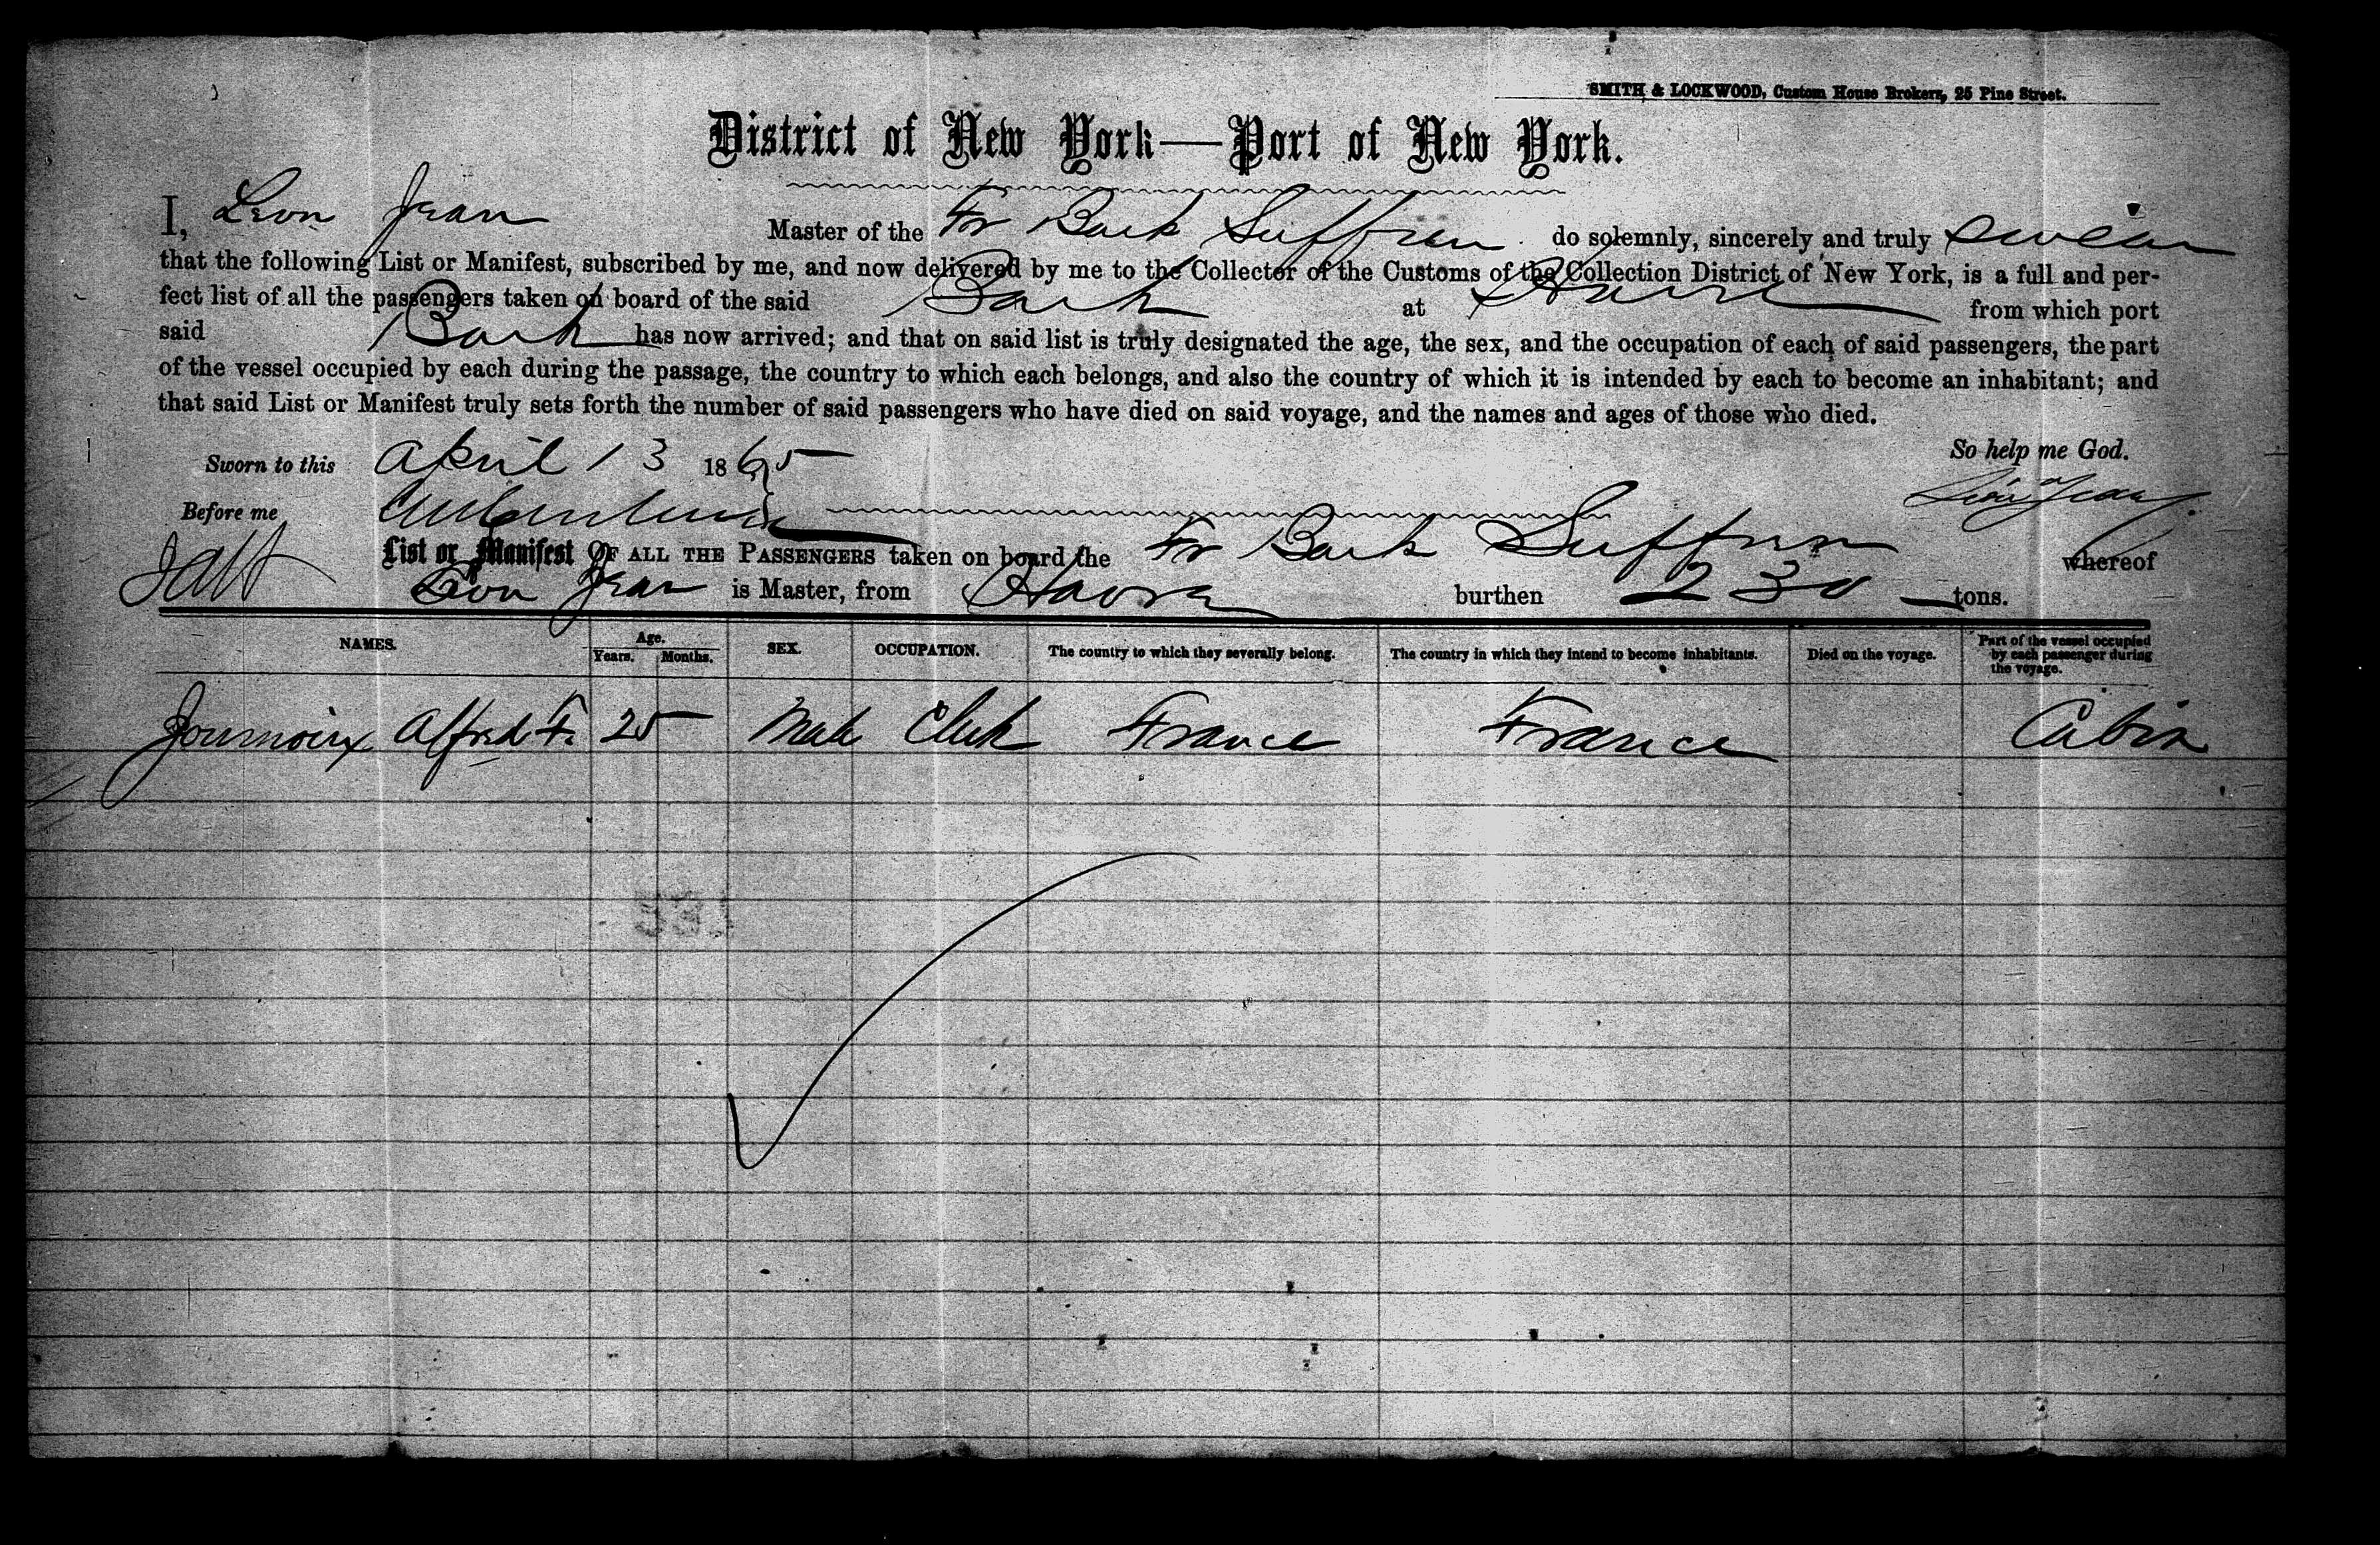 SMITH & LOCKWOOD, Custom House Brokers, 25 Pine Street.
District of New York—Port of New York.
I, Leon Jean Master of the Fr Bark Suffren do solemnly, sincerely and truly swear
that the following List or Manifest, subscribed by me, and now delivered by me to the Collector of the Customs of the Collection District of New York, is a full and per-
fect list of all the passengers taken on board of the said Bark at Havre from which port
said Bark has now arrived; and that on said list is truly designated the age, the sex, and the occupation of each of said passengers, the part
of the vessel occupied by each during the passage, the country to which each belongs, and also the country of which it is intended by each to become an inhabitant; and
that said List or Manifest truly sets forth the number of said passengers who have died on said voyage, and the names and ages of those who died.
Sworn to this April 13 1865 So help me God.
Before me Léon Jean
List or Manifest OF ALL THE PASSENGERS taken on board the Fr Bark Suffren whereof
Leon Jean is Master, from Havre burthen 230 tons.
NAMES. Age. Years. Months. SEX. OCCUPATION. The country to which they severally belong. The country in which they intend to become inhabitants. Died on the voyage. Part of the vessel occupied by each passenger during the voyage.
Alfred F. 25 Male Clerk France France Cabin